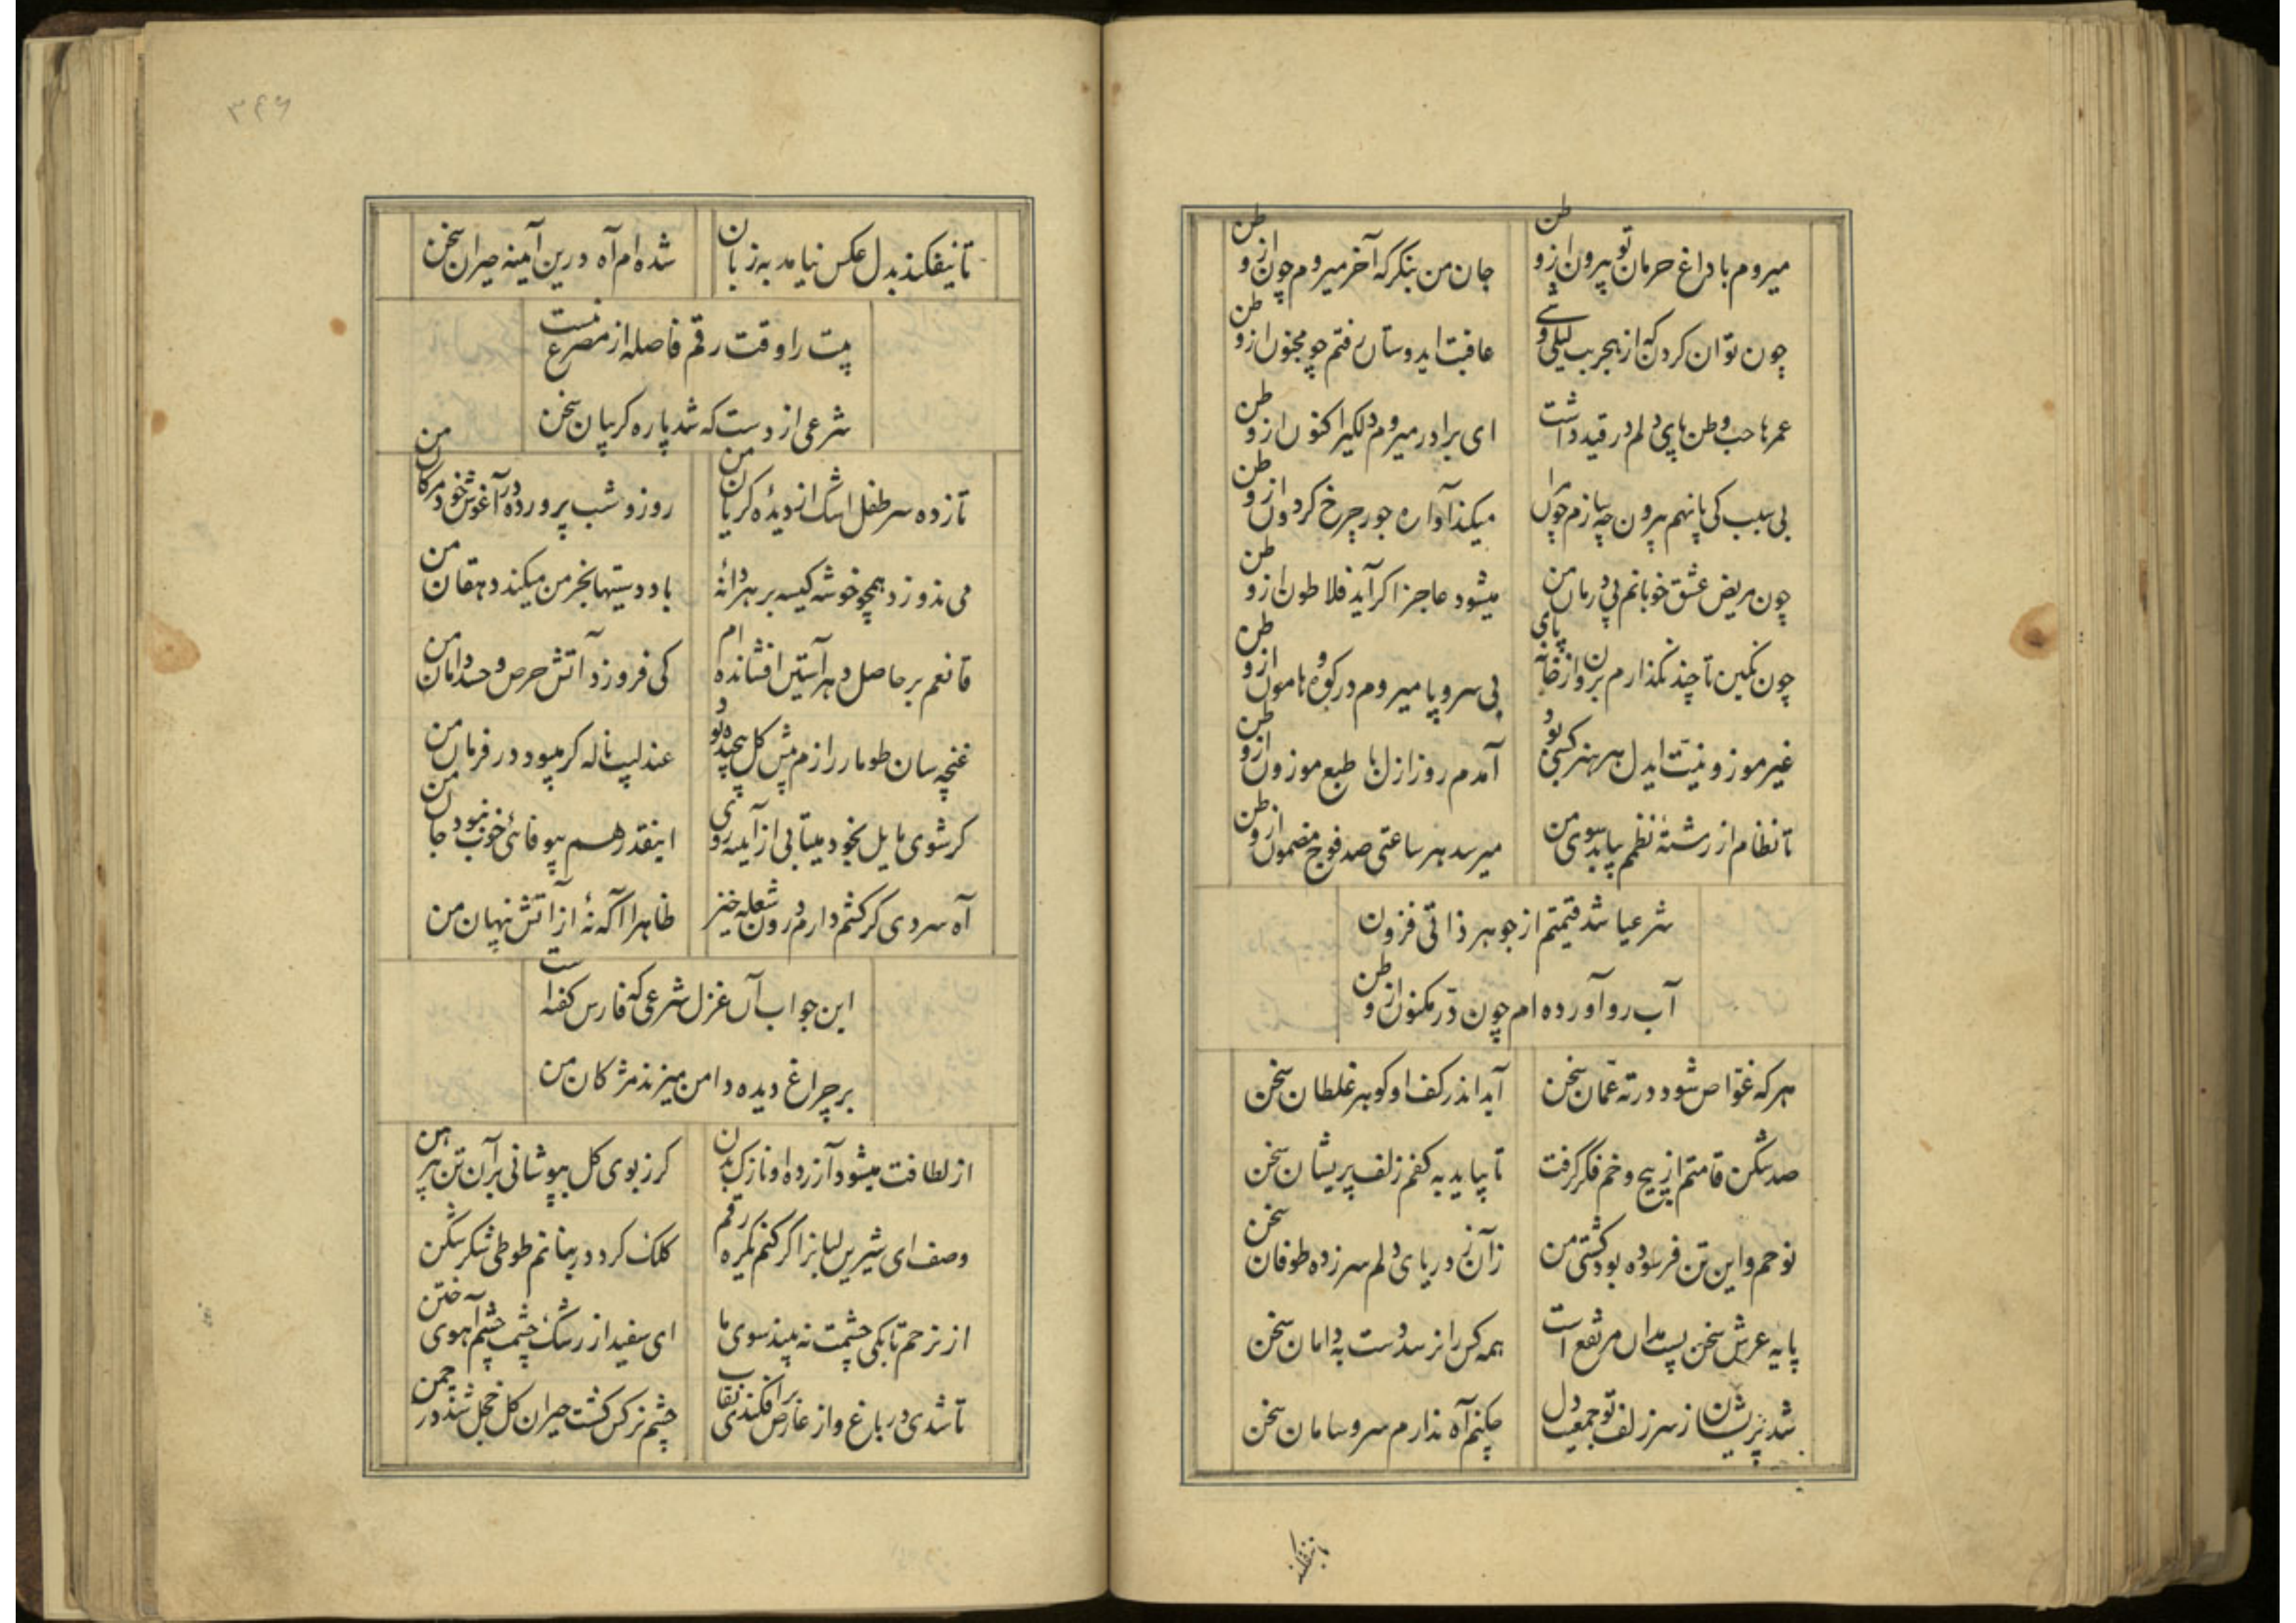 میروم با داغ حرمان تو بیرون از وطن
جان من بنگر که آخر میروم چون از وطن
چون توان کردن که از هجر بت لیلی وشی
عاقبت ایدوستان رفتم چو مجنون از وطن
عمرها حب وطن پای دلم در قید داشت
ای برادر میروم دلگیر اکنون از وطن
بی سبب کی پا نهم بیرون چه سازم چون مرا
میکند آواره جور چرخ گردون از وطن
چون مریض عشق خوبانم پی درمان من
میشود عاجز اگر آید فلاطون از وطن
چون نگین تا چند نگذارم برون از خانه پای
بی سر و پا میروم در کوه و هامون از وطن
غیر موزونیت ایدل هر هنر کسبی بود
آمدم روز ازل با طبع موزون از وطن
تا نظام از رشتهٔ نظمم بیابد سوی من
میرسد هر ساعتی صد فوج مضمون از وطن
شرعیا شد قیمتم از جوهر ذاتی فزون
آب رو آورده ام چون در مکنون از وطن
هر که غواص شود در ته عمان سخن
آید اندر کف او گوهر غلطان سخن
صد شکن قامتم از پیچ و خم فکر گرفت
تا بیاید به کفم زلف پریشان سخن
نوحم و این تن فرسوده بود کشتی من
زآن ز دریای دلم سر زده طوفان سخن
پایه عرش سخن بسمدان مرتفع است
همه کس را نرسد دست به دامان سخن
شد پریشان ز سر زلف تو جمعیت دل
چکنم آه ندارم سر و سامان سخن
تا نیفکند بدل عکس نیامد به زبان
شده ام آه درین آینه حیران سخن
بیت را وقت رقم فاصله از مصرع نیست
شرعی از دست که شد پاره گریبان سخن
تا زده سر طفل اشک از دیدهٔ گریان من
روز و شب پرورده در آغوش خود مژگان من
می ندوزد همچو خوشه کیسه بر هر دانهٔ
باد دستیها بخرمن میکند دهقان من
قانعم بر حاصل دهر آستین افشانده ام
کی فروزد آتش حرص و حسد دامان من
غنچه سان طومار رازم پیش گل پیچیده بود
عندلیب ناله گر میبود در فرمان من
گر شوی مایل بخود میتابی از آیینه روی
اینقدر هم بیوفائی خوب نبود جان من
آه سردی گر کشم دارم درون شعله خیز
ظاهرا آگه نهٔ از آتش پنهان من
این جواب آن غزل شرعی که فارس گفته است
بر چراغ دیده دامن میزند مژگان من
از لطافت میشود آزرده او نازک بدن
گر ز بوی گل بپوشانی بر آن تن پیرهن
وصفت ای شیرین لبا بنز اگر کنم یکره رقم
کلک گردد در بنانم طوطی شکر شکن
از ترحم تا بکی چشمت نه بیند سوی ما
ای سفید از رشک چشمت چشم آهوی ختن
تا شدی در باغ و از عارض برافکندی نقاب
چشم نرگس گشت حیران گل خجل شد در چمن